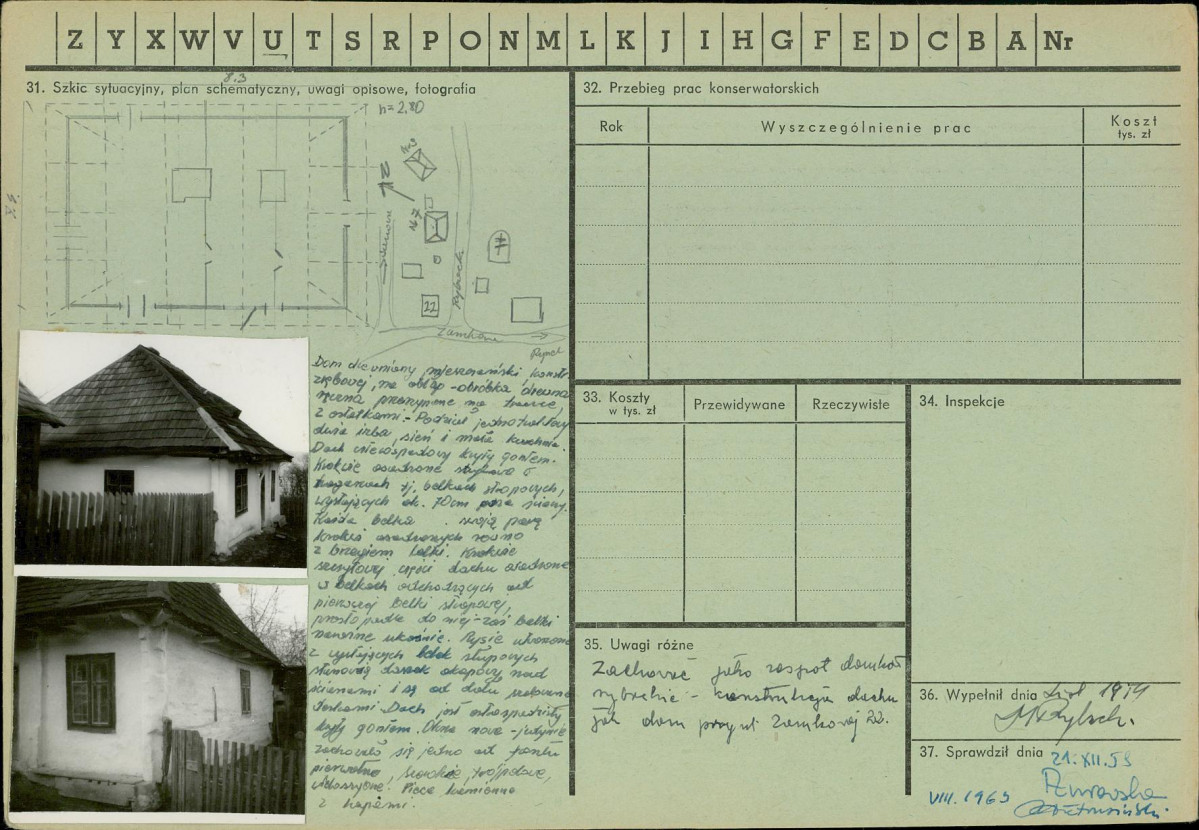 Z Y X W V U T S R P O N M L K J I H G F E D C B A Nr
31. Szkic sytuacyjny, plan schematyczny, uwagi opisowe, fotografia
8.3
h=2,80
N
22
Rybacka
Zamkowa
Rynek
Dom drewniany, mieszczański, konstr.
zrębowej, na obłap - obróbka drewna
ręczna
z ostatkami. - Podział jednotraktowy
dwie izba, sień i mała kuchnia.
Dach czterospadowy kryty gontem.
Krokwie osadzone
tj. belkach stropowych,
wystających ok. 70cm poza ściany.
Każda belka swoją parę
krokwi osadzonych równo
z brzegiem belki. Krokwie
szczytowej części dachu osadzone
w belkach odchodzących od
pierwszej belki stropowej,
prostopadle do niej - zaś belki
narożne ukośnie. Rysie
z wystających belek stropowych
stanowią daszek okapowy nad
ścianami i są od dołu
deskami. Dach jest czterospadowy
kryty gontem. Okna nowe - jedynie
zachowało się jedno od frontu
pierwotne,
Piece kamienne
z kapami.
32. Przebieg prac konserwatorskich
Rok
Wyszczególnienie prac
Koszt
tys. zł
33. Koszty
w tys. zł
Przewidywane
Rzeczywiste
34. Inspekcje
35. Uwagi różne
Zachować jako zespół domków
rybackie - konstrukcja dachu
jak dom przy ul. Zamkowej 22.
36. Wypełnił dnia
37. Sprawdził dnia
21.XII.59
VIII.1965